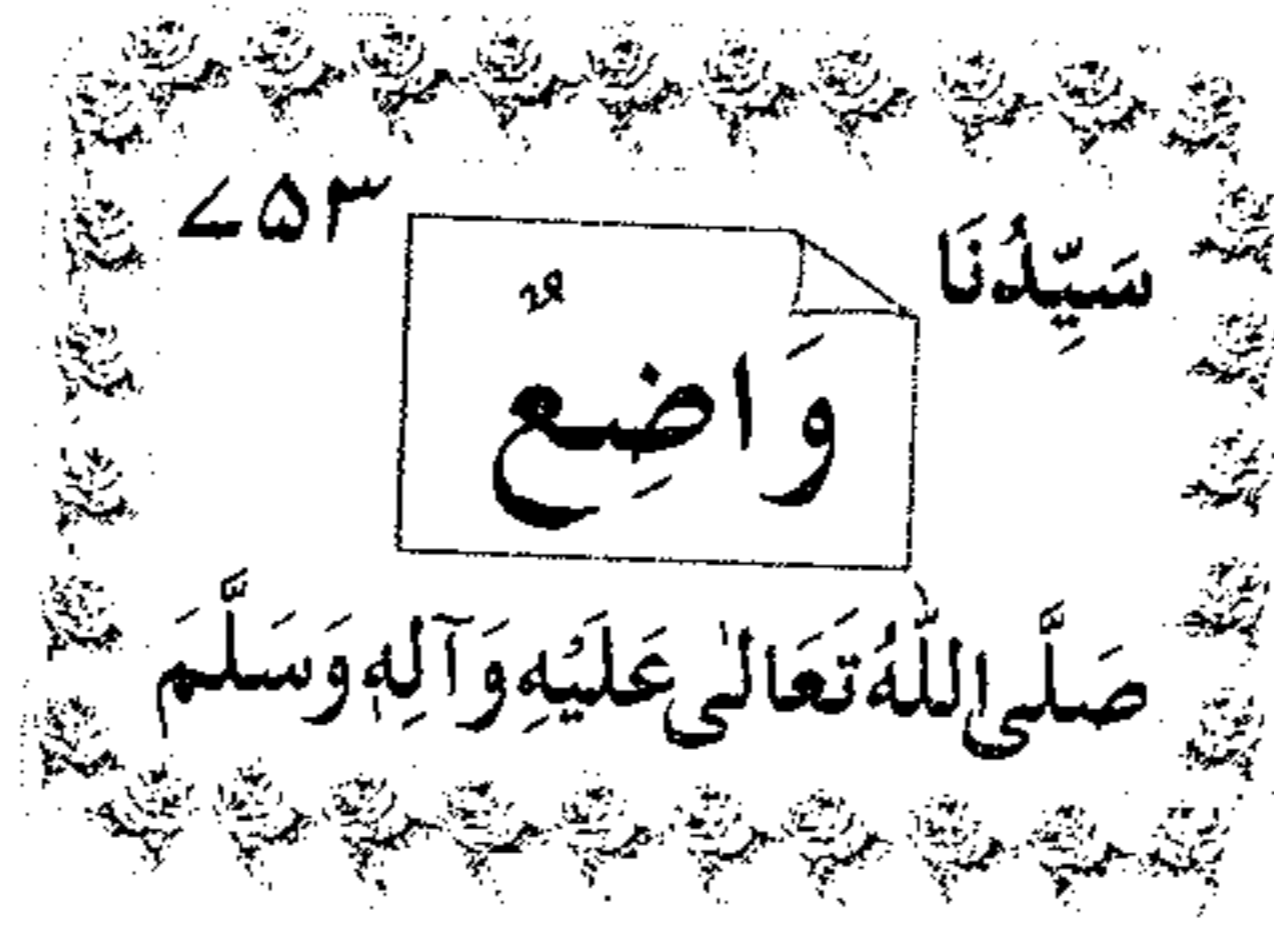 سَيِّدُنَا ۷۵۳
وَاضِعٌ
صَلَّى اللّٰهُ تَعَالٰى عَلَيْهِ وَآلِهٖ وَسَلَّمَ